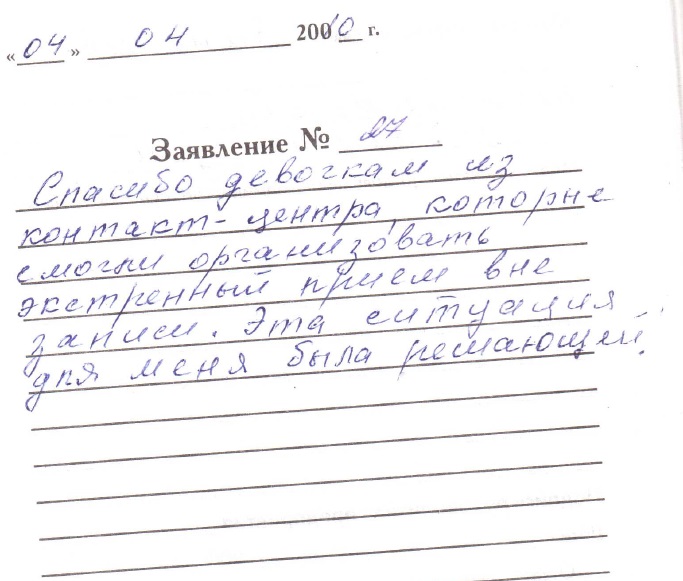 «04» 04 2010 г.
Заявление № 27
Спасибо девочкам из
контакт-центра, которые
смогли организовать
экстренный прием вне
записи. Эта ситуация
для меня была решающей.